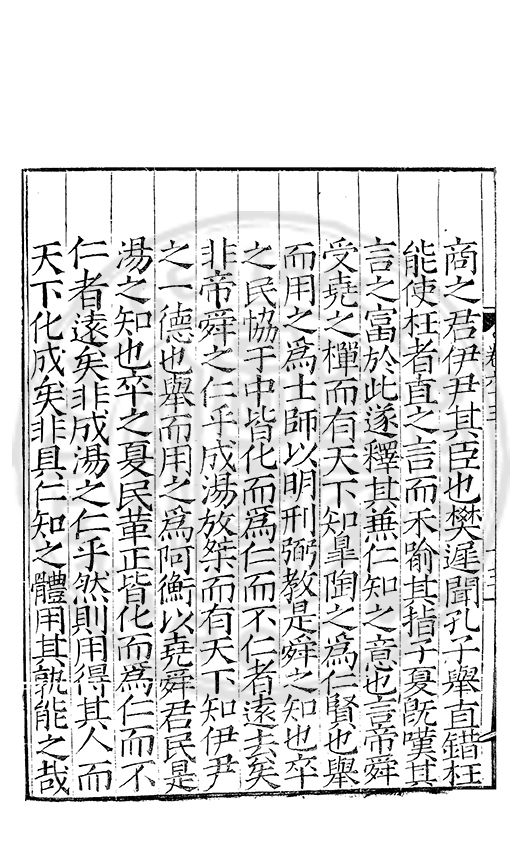 商之君伊尹其臣也樊遲聞孔子舉直錯枉
能使枉者直之言而未喻其指子夏旣嘆其
言之富於此遂釋其兼仁知之意也言帝舜
受堯之禪而有天下知臯陶之爲仁賢也舉
而用之爲士師以明刑弼教是舜之知也卒
之民協于中皆化而爲仁而不仁者遠去矣
非帝舜之仁乎成湯放桀而有天下知伊尹
之一德也舉而用之爲阿衡以堯舜君民是
湯之知也卒之夏民革正皆化而爲仁而不
仁者遠矣非成湯之仁乎然則用得其人而
天下化成矣非具仁知之體用其孰能之哉